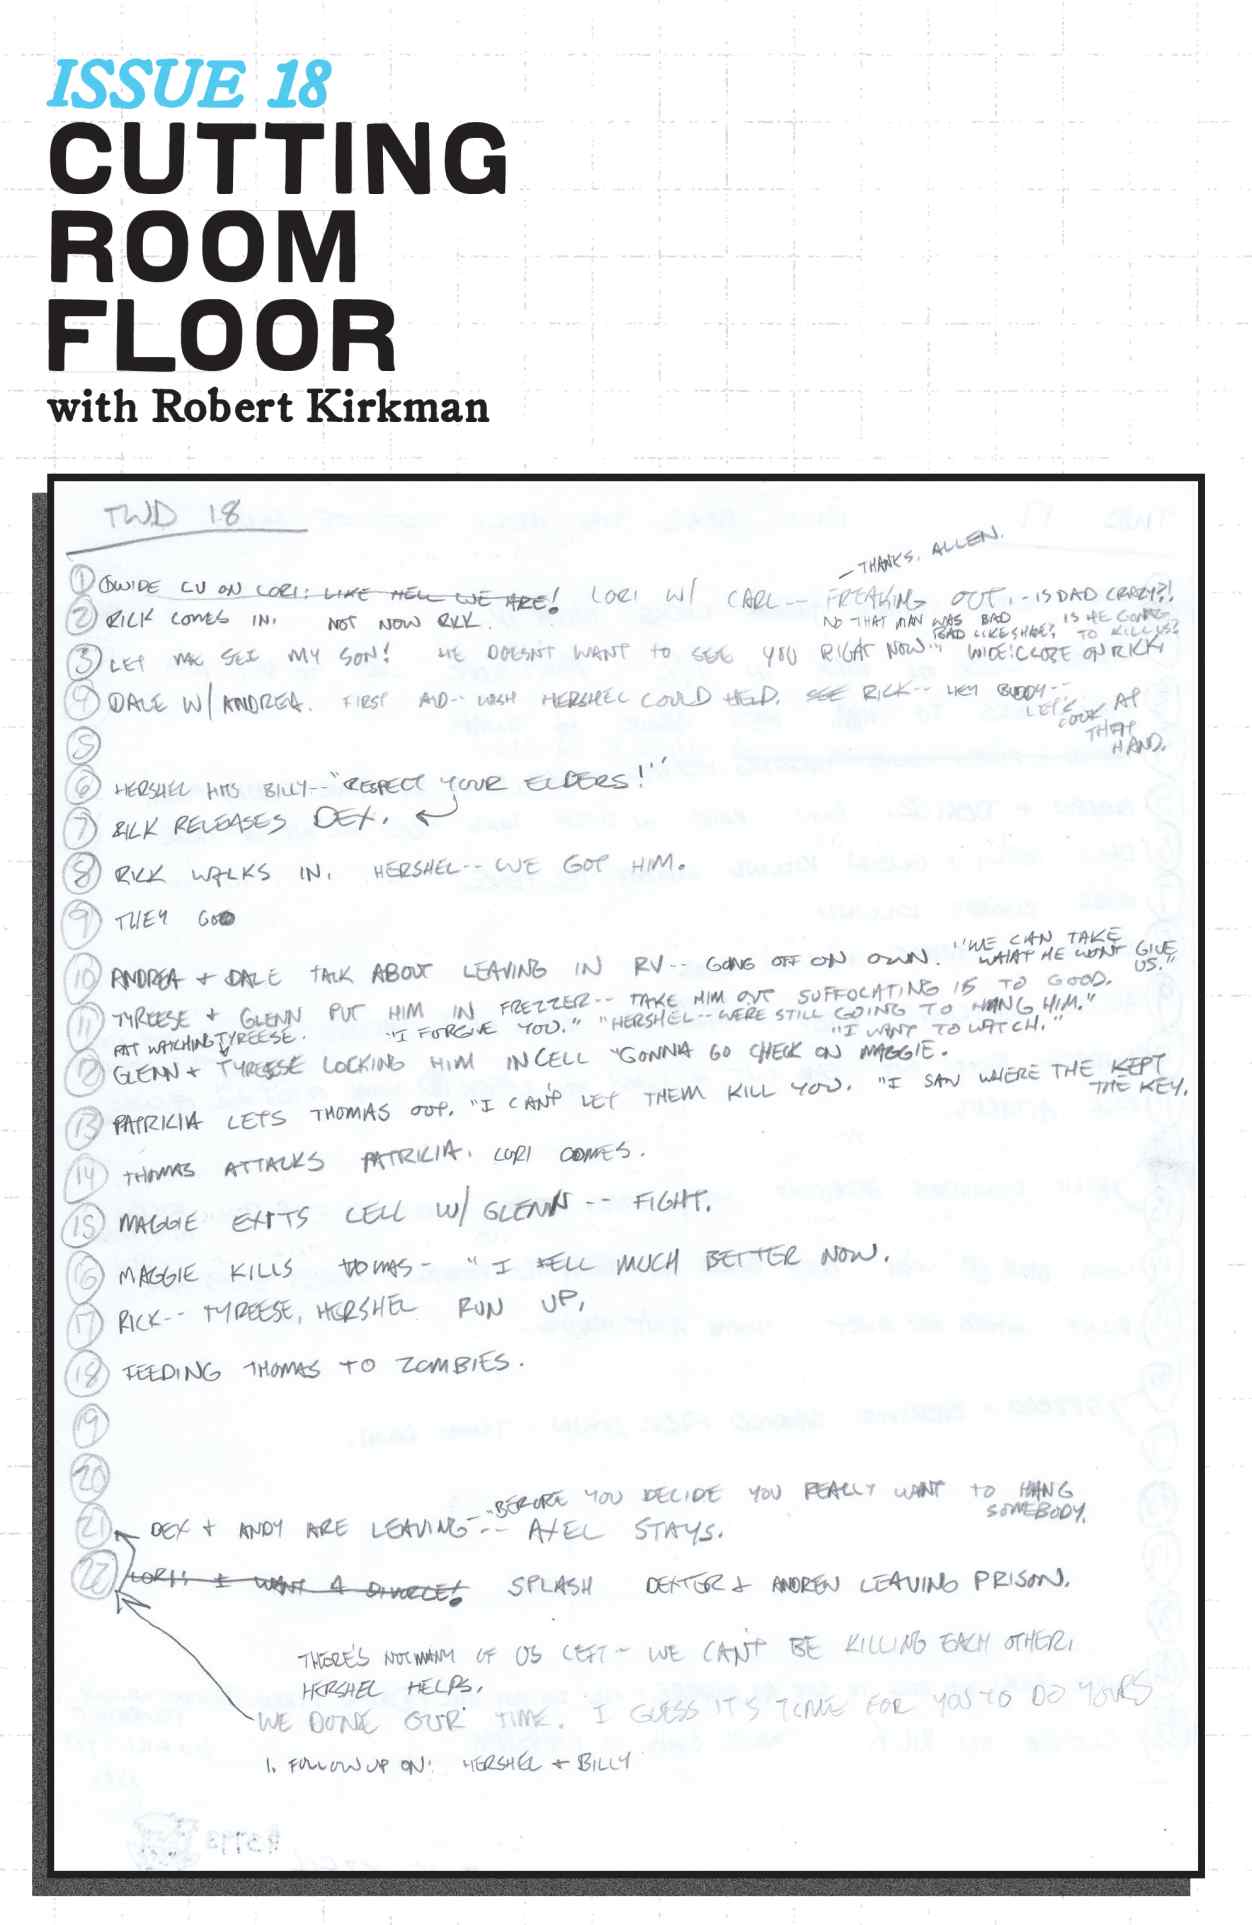 ISSUE 18
CUTTING
ROOM
FLOOR
with Robert Kirkman
TWD 18
– THANKS, ALLEN.
① WIDE CU ON LORI: LIKE HELL WE ARE! LORI W/ CARL -- FREAKING OUT, - IS DAD CRAZY?!
② RICK COMES IN. NOT NOW RICK. NO THAT MAN WAS BAD IS HE GOING
BAD LIKE SHANE? TO KILL US?
③ LET ME SEE MY SON! HE DOESN'T WANT TO SEE YOU RIGHT NOW" WIDE: CLOSE ON RICK
④ DALE W/ ANDREA. FIRST AID-- WISH HERSHEL COULD HELD. SEE RICK-- HEY BUDDY--
LET'S
LOOK AT
THAT
HAND.
⑤
⑥ HERSHEL HITS BILLY-- "RESPECT YOUR ELDERS!"
⑦ RICK RELEASES DEX.
⑧ RICK WALKS IN. HERSHEL-- WE GOT HIM.
⑨ THEY GO
⑩ ANDREA + DALE TALK ABOUT LEAVING IN RV-- GOING OFF ON OWN. "WE CAN TAKE
WHAT HE WON'T GIVE
US."
⑪ TYREESE + GLENN PUT HIM IN FREZZER-- TAKE HIM OUT SUFFOCATING IS TO GOOD.
PAT WATCHING TYREESE. "I FORGIVE YOU." "HERSHEL-- WERE STILL GOING TO HANG HIM."
"I WANT TO WATCH."
⑫ GLENN + TYREESE LOCKING HIM IN CELL "GONNA GO CHECK ON MAGGIE.
⑬ PATRICIA LETS THOMAS OUT. "I CAN'T LET THEM KILL YOU. "I SAW WHERE THE KEPT
THE KEY.
⑭ THOMAS ATTACKS PATRICIA. LORI COMES.
⑮ MAGGIE EXITS CELL W/ GLENN -- FIGHT.
⑯ MAGGIE KILLS THOMAS- "I FELL MUCH BETTER NOW.
⑰ RICK-- TYREESE, HERSHEL RUN UP,
⑱ FEEDING THOMAS TO ZOMBIES.
⑲
⑳
㉑ DEX + ANDY ARE LEAVING -- "BEFORE YOU DECIDE YOU REALLY WANT TO HANG
SOMEBODY.
-- AXEL STAYS.
㉒ LORI: I WANT A DIVORCE! SPLASH DEXTER & ANDREW LEAVING PRISON.
THERE'S NOT MANY OF US LEFT-- WE CAN'T BE KILLING EACH OTHER.
HERSHEL HELPS.
WE DONE OUR TIME. I GUESS IT'S TIME FOR YOU TO DO YOURS
1. FOLLOW UP ON: HERSHEL + BILLY